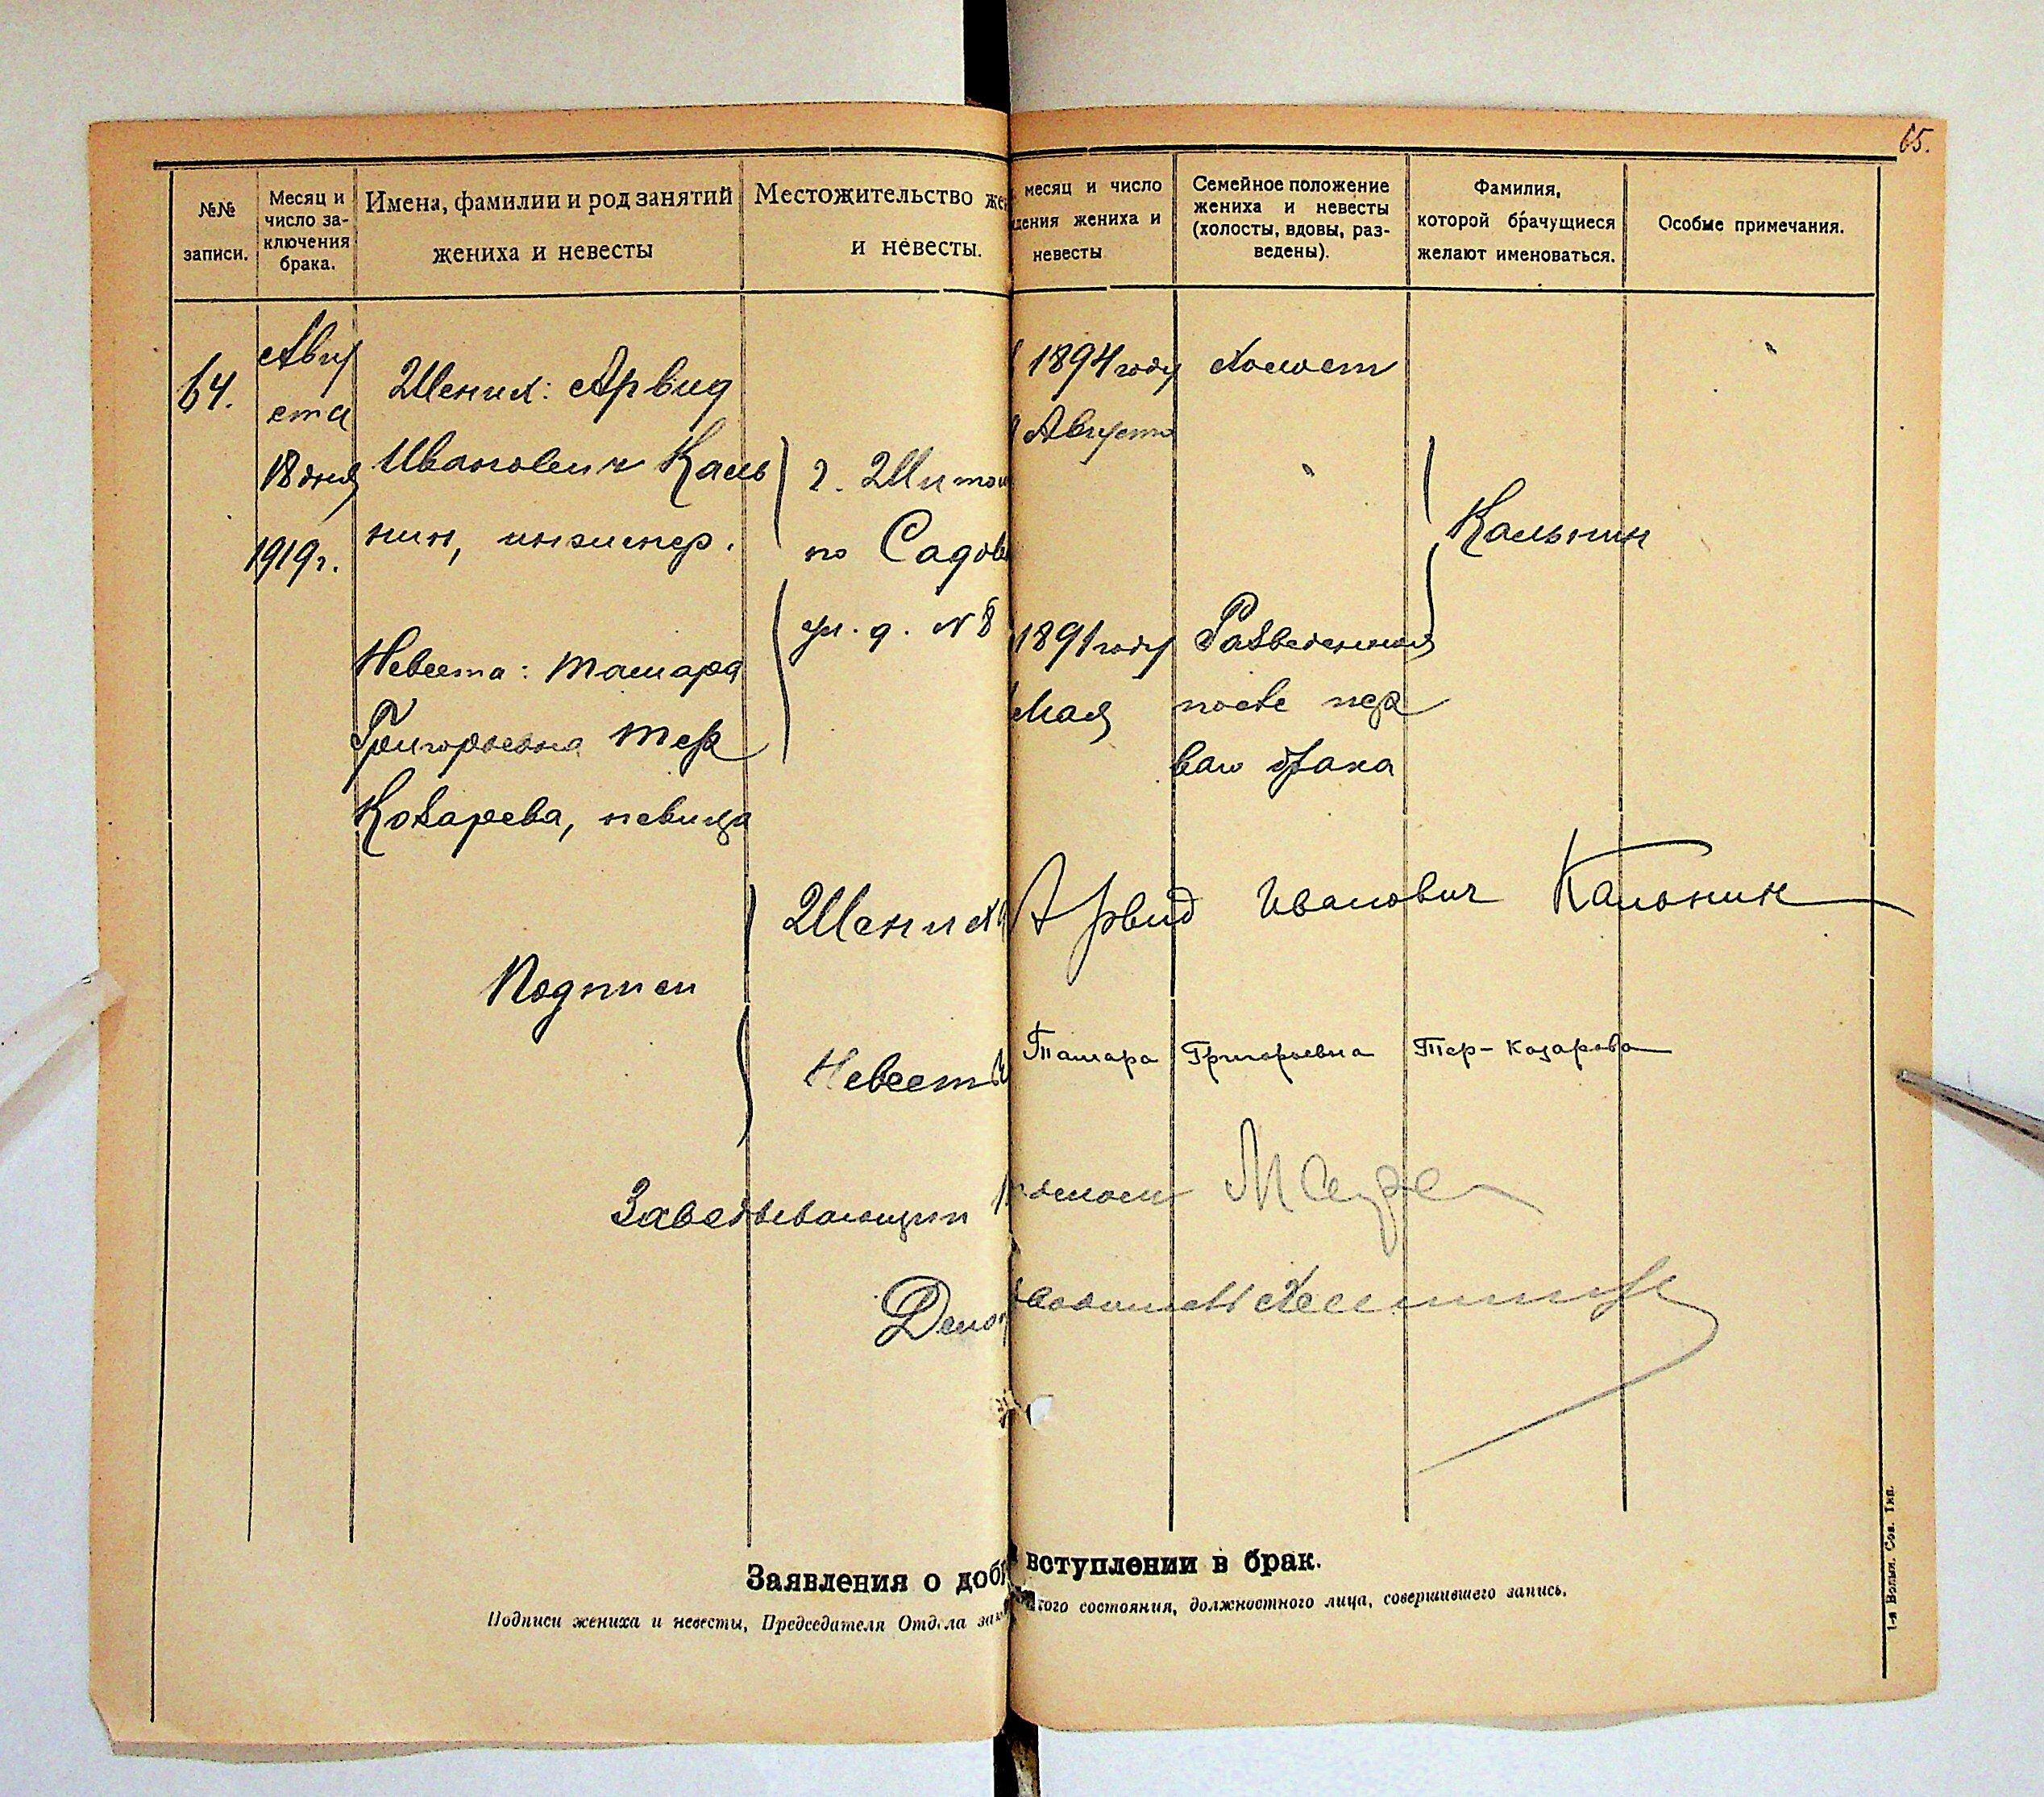 65.
№№ записи.
Месяц и число за-
ключения
брака.
Имена, фамилии и род занятий
жениха и невесты
Местожительство же
и невесты.
месяц и число
дения жениха и
невесты
Семейное положение
жениха и невесты
(холосты, вдовы, раз-
ведены).
Фамилия,
которой брачущиеся
желают именоваться.
Особые примечания.
64.
Авгу
ста
18 дня
1919 г.
Жених: Арвид
Иванович Каль
нин, инженер.
Невеста: Тамара
Григорьевна Тер
Козарева, певица
г. Житом
по Садов
ул. д. № 8
1894 году
Августа
1891 году
Мая
Холост
"
Разведенная
после пер
ваго брака
Кальнин
"
Подписи
Жених Арвид Иванович Кальнин
Невесты Тамара Григорьевна Тер-Козарова
Заведывающий
Дело
Заявления о доб вступлении в брак.
Подписи жениха и невесты, Председателя Отдела за кого состояния, должностного лица, совершившего запись.
1-я Волын. Сов. Тип.